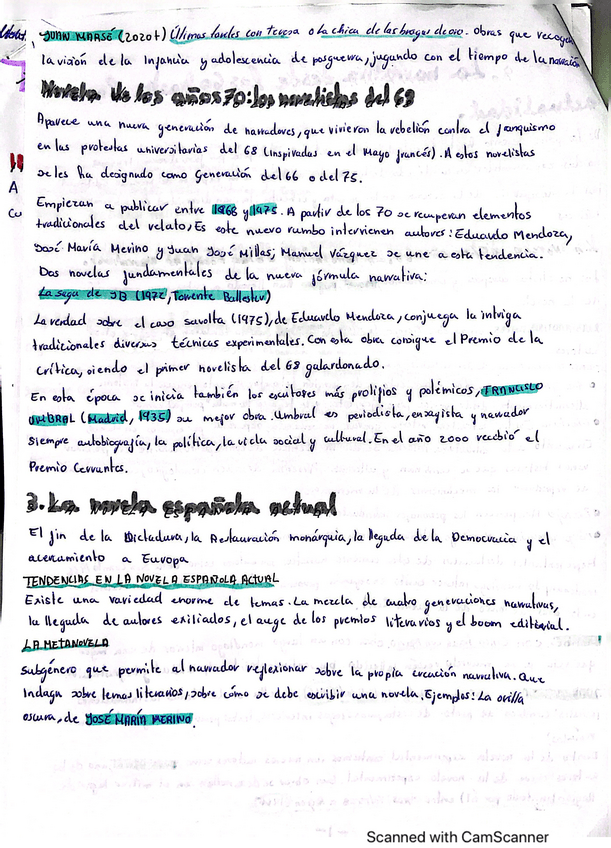 JUAN MARSÉ (2020†) Últimas tardes con teresa o la chica de las bragas de oro. Obras que recogen
la visión de la Infancia y adolescencia de posguerra, jugando con el tiempo de la narración
Novela de los años 70: los novelistas del 68
Aparece una nueva generación de narradores, que vivieron la rebelión contra el franquismo
en las protestas universitarias del 68 (Inspiradas en el Mayo francés). A estos novelistas
se les ha designado como Generación del 66 o del 75.
A
Cu
Empiezan a publicar entre 1968 y 1975. A partir de los 70 se recuperan elementos
tradicionales del relato, Es este nuevo rumbo intervienen autores: Eduardo Mendoza,
José María Merino y Juan José Millas; Manuel Vázquez se une a esta tendencia.
Dos novelas fundamentales de la nueva fórmula narrativa:
La saga de JB (1972, Torrente Ballester)
La verdad sobre el caso savolta (1975), de Eduardo Mendoza, conjuega la intriga
tradicionales diversas técnicas experimentales. Con esta obra consigue el Premio de la
Crítica, siendo el primer novelista del 68 galardonado.
En esta época se inicia también los escritores más prolijios y polémicos, FRANCISCO
UMBRAL (Madrid, 1935) su mejor obra. Umbral es periodista, ensayista y narrador
siempre autobiografía, la política, la vida social y cultural. En el año 2000 recibió el
Premio Cervantes.
3. La novela española actual
El fin de la Dictadura, la Restauración monárquia, la llegada de la Democracia y el
acercamiento a Europa
TENDENCIAS EN LA NOVELA ESPAÑOLA ACTUAL
Existe una variedad enorme de temas. La mezcla de cuatro generaciones narrativas,
la llegada de autores exiliados, el auge de los premios literarios y el boom editorial.
LA METANOVELA
Subgénero que permite al narrador reflexionar sobre la propia creación narrativa. Que
Indaga sobre temas literarios, sobre cómo se debe escribir una novela. Ejemplos: La orilla
oscura, de JOSÉ MARÍA MERINO
Scanned with CamScanner